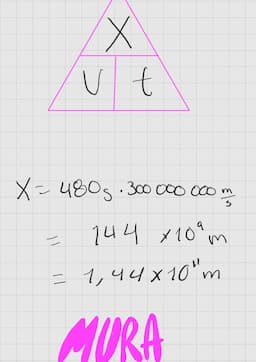 X
v t
X = 480s · 300 000 000 m/s
= 144 ×10⁹ m
= 1,44 × 10¹¹ m
MURA